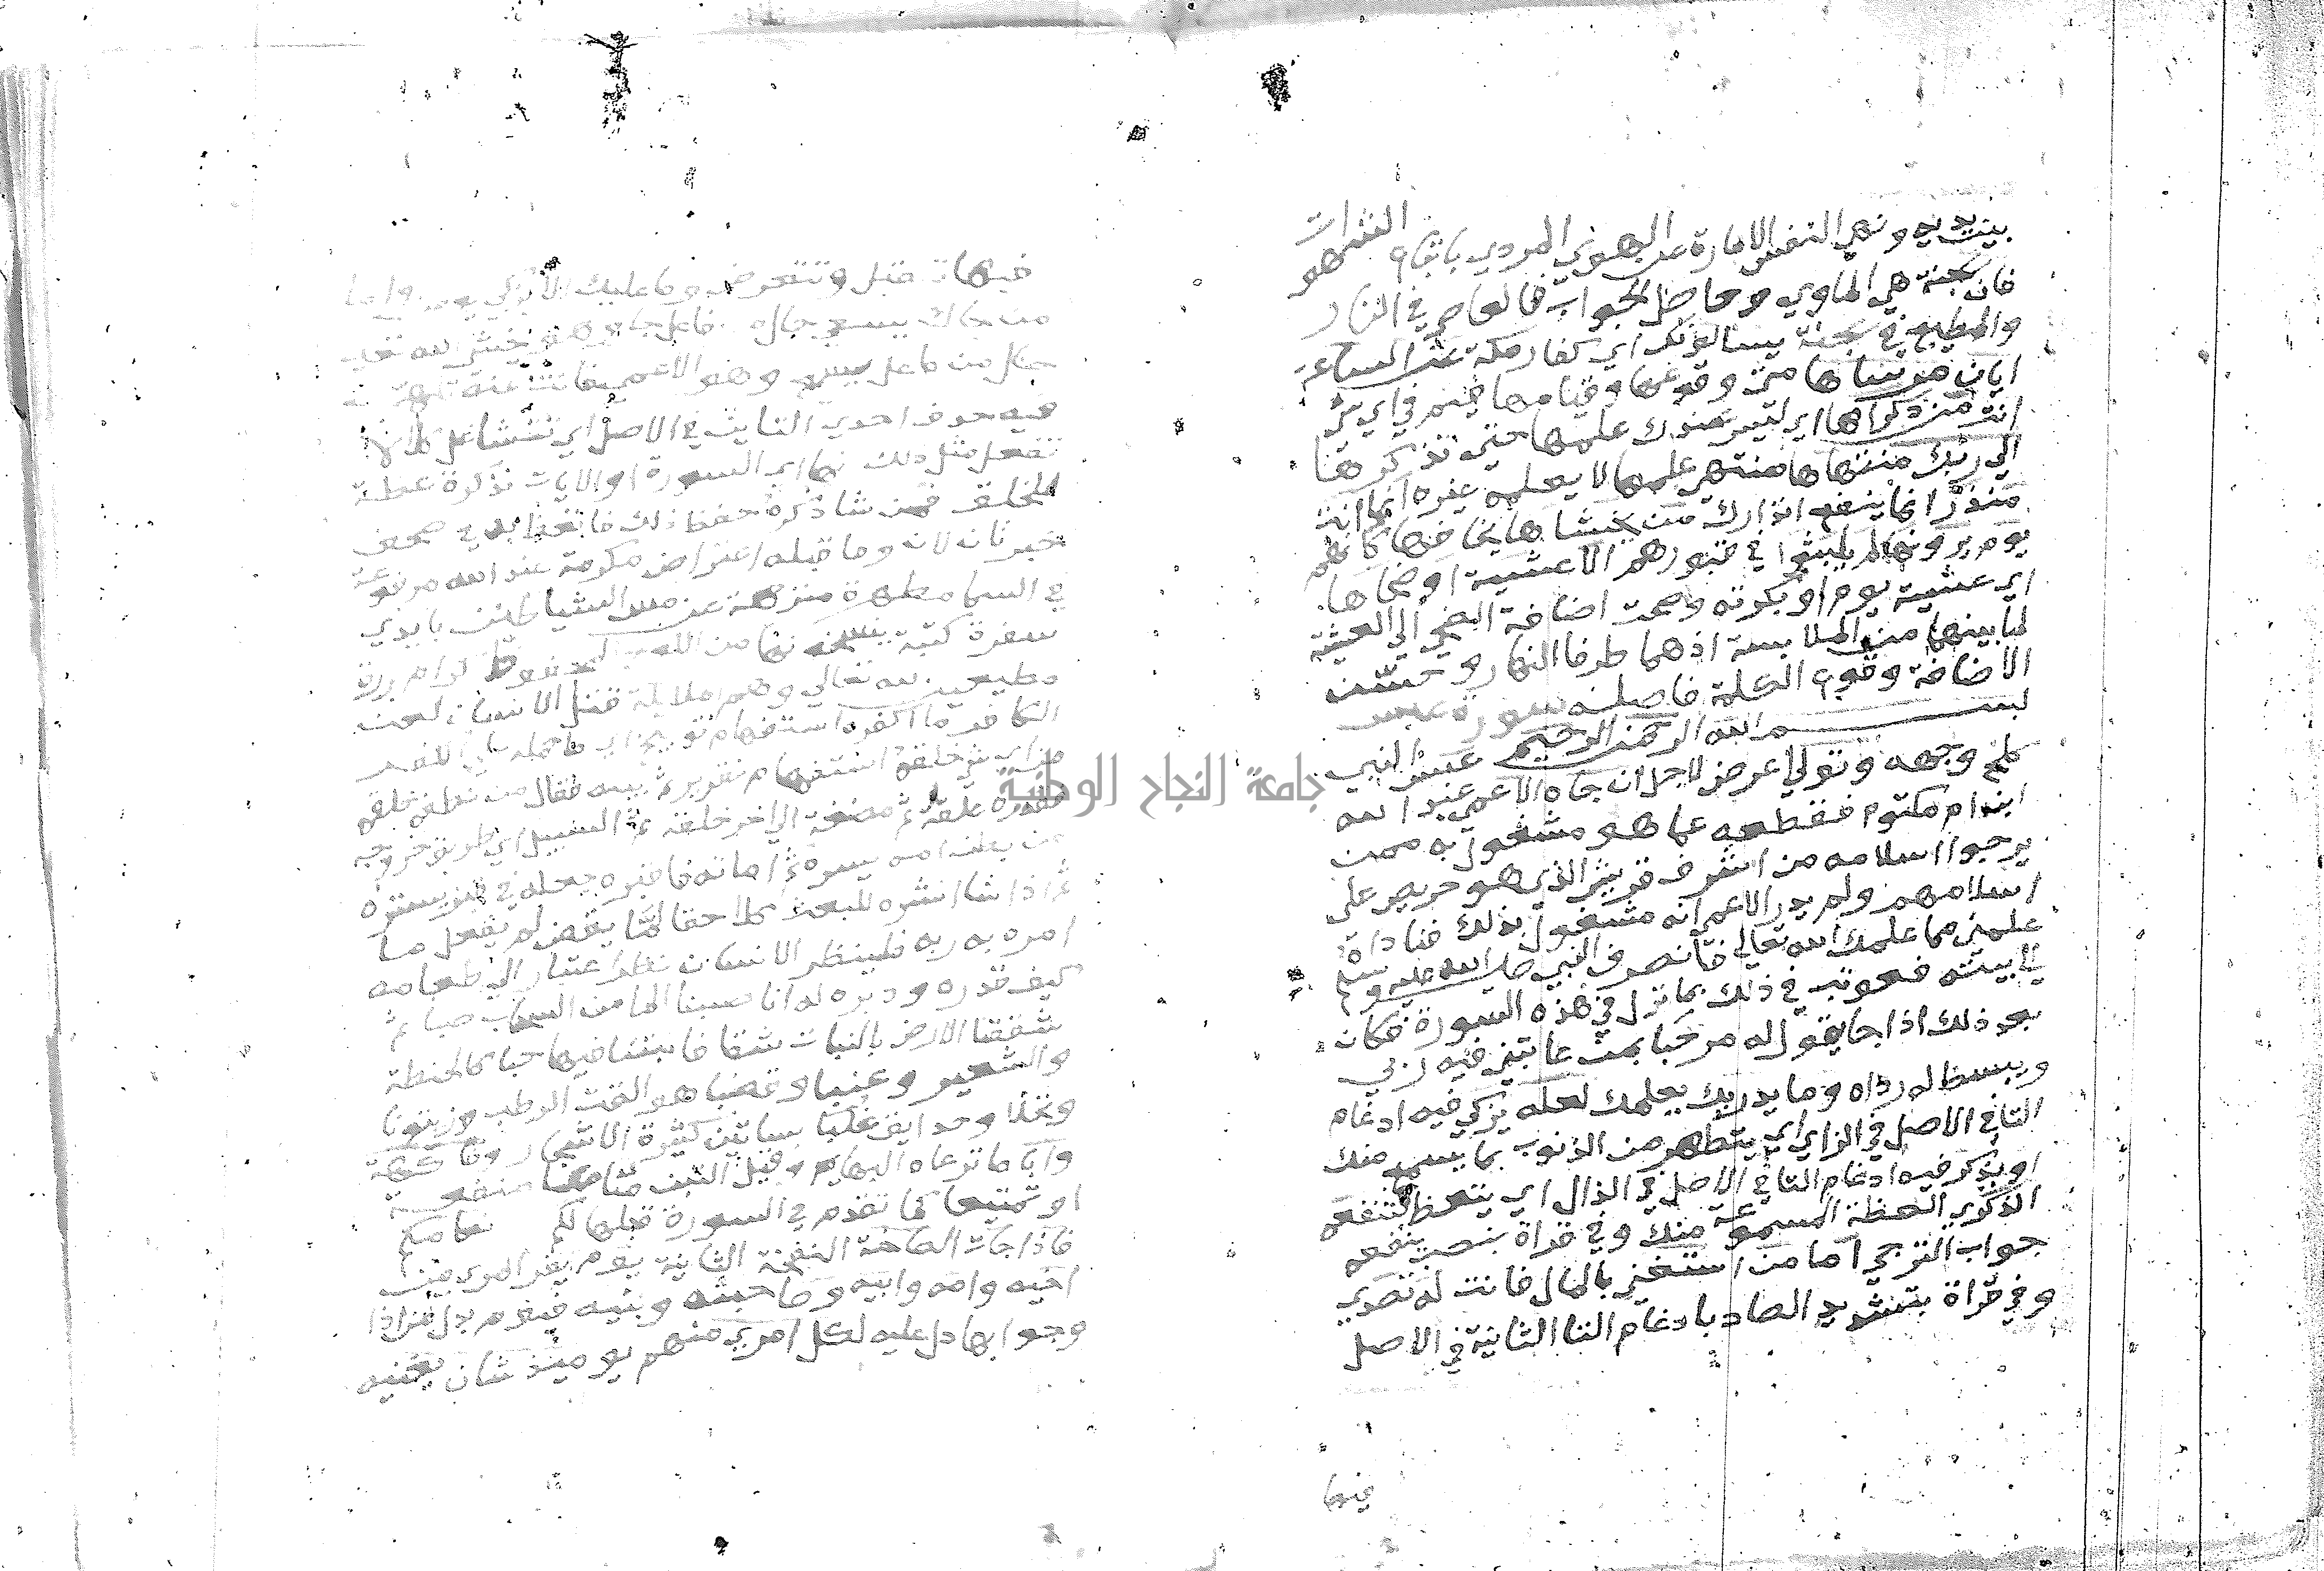 بين يديه ونهي النفس الامارة عن الهوي المردي باتباع الشهوات
فان الجنة هي الماوي وحاصل الجواب فالعاصي في النار
والمطيع في الجنة يسالونك اي كفار مكة عن الساعة
ايان مرساها متي وقوعها وقيامها فيم في اي شي
انت من ذكراها اي ليس عندك علمها حتي تذكرها
الي ربك منتهاها منتهي علمها لا يعلمه غيره انما انت
منذر انما ينفع انذارك من يخشاها يخافها كانهم
يوم يرونها لم يلبثوا في قبورهم الا عشية او ضحاها
اي عشية يوم او بكرته وصحت اضافة الضحي الي العشية
لما بينهما من الملابسة اذ هما طرفا النهار وحسن
الاضافة وقوع الكلمة فاصلة سورة عبس
بسم الله الرحمن الرحيم عبس النبي
كلح وجهه وتولي اعرض لاجل ان جاه الاعمي عبد الله
ابن ام مكتوم فقطعه عما هو مشغول به ممن
يرجوا اسلامه من اشرف قريش الذي هو حريص علي
اسلامهم ولم يدر الاعمي انه مشغول بذلك فناداه
علمني مما علمك الله تعالي فانصرف النبي صلي الله عليه وسلم
الي بيته فعوتب في ذلك بما نزل في هذه السورة فكان
بعد ذلك اذا جا يقول له مرحبا بمن عاتبني فيه ربي
ويبسط له رداه وما يدريك يعلمك لعله يزكي فيه ادغام
التا في الاصل في الزاي اي يتطهر من الذنوب بما يسمع منك
او يذكر فيه ادغام التا في الاصل في الذال اي يتعظ فتنفعه
الذكري العظة المسموعة منك وفي قراة بنصب تنفعه
جواب الترجي اما من استغني بالمال فانت له تصدي
وفي قراة بتشديد الصاد بادغام التا الثانية في الاصل
فيها
فيها تقبل وتتعرض وما عليك الا يزكي واما
من جاك يسعي حال من فاعل جا وهو يخشي الله
حال من فاعل يسعي وهو الاعمي فانت عنه تلهي
فيه حذف احدي التايين في الاصل اي تتشاغل كلا لا
تفعل مثل ذلك انها اي السورة او الايات تذكرة عظة
للخلق فمن شا ذكره حفظ ذلك فاتعظ به في صحف
خبر ثان لانه وما قبله اعتراض مكرمة عند الله مرفوعة
في السما مطهرة منزهة عن مس الشياطين بايدي
سفرة كتبة ينسخونها من اللوح المحفوظ كرام بررة
مطيعين لله تعالي وهم الملايكة قتل الانسان لعن
الكافر ما اكفره استفهام توبيخ اي ما حمله علي الكفر
من اي شي خلقه استفهام تقرير ثم بينه فقال من نطفة خلقه
فقدره علقة ثم مضغة الي اخر خلقه ثم السبيل اي طريق خروجه
من بطن امه يسره ثم اماته فاقبره جعله في قبر يستره
ثم اذا شا انشره للبعث كلا حقا لما يقض لم يفعل ما
امره به ربه فلينظر الانسان نظر اعتبار الي طعامه
كيف قدره ودبره له انا صببنا الما من السحاب صبا ثم
شققنا الارض بالنبات شقا فانبتنا فيها حبا كالحنطة
والشعير وعنبا وقضبا هو القت الرطب وزيتونا
ونخلا وحدايق غلبا بساتين كثيرة الاشجار وفاكهة
وابا ما ترعاه البهايم وقيل التبن متاعا منفعة
او تمتيعا كما تقدم في السورة قبلها لكم ولانعامكم
فاذا جات الصاخة النفخة الثانية يوم يفر المرء من
اخيه وامه وابيه وصاحبته وبنيه فيوم بدل من اذا
وجوابها دل عليه لكل امري منهم يومئذ شان يغنيه
جامعة النجاح الوطنية